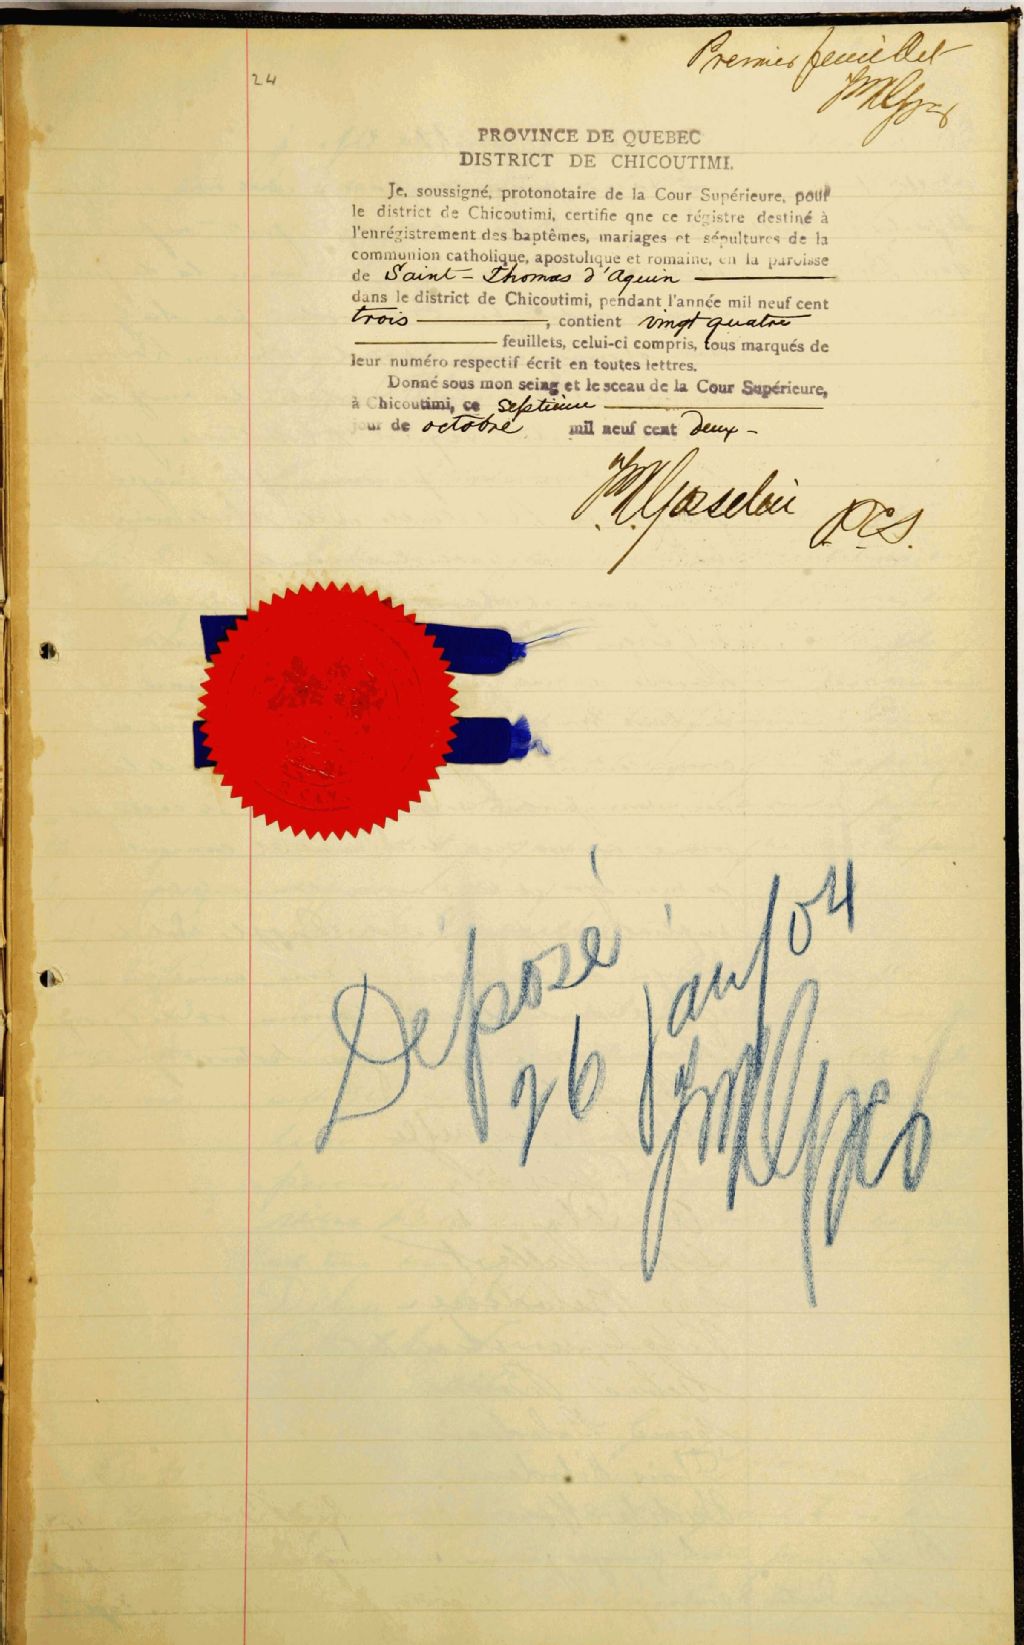 Premier feuillet
24
PROVINCE DE QUEBEC
DISTRICT DE CHICOUTIMI.
Je, soussigné, protonotaire de la Cour Supérieure, pour
le district de Chicoutimi, certifie qne ce régistre destiné à
l'enrégistrement des baptêmes, mariages et sépultures de la
communion catholique, apostolique et romaine, en la paroisse
de Saint-Thomas d'Aquin
dans le district de Chicoutimi, pendant l'année mil neuf cent
trois, contient vingt quatre
feuillets, celui-ci compris, tous marqués de
leur numéro respectif écrit en toutes lettres.
Donné sous mon seing et le sceau de la Cour Supérieure,
à Chicoutimi, ce septieme
jour de octobre mil neuf cent deux -
Gosselin P.C.S.
Déposé
26 janv 04